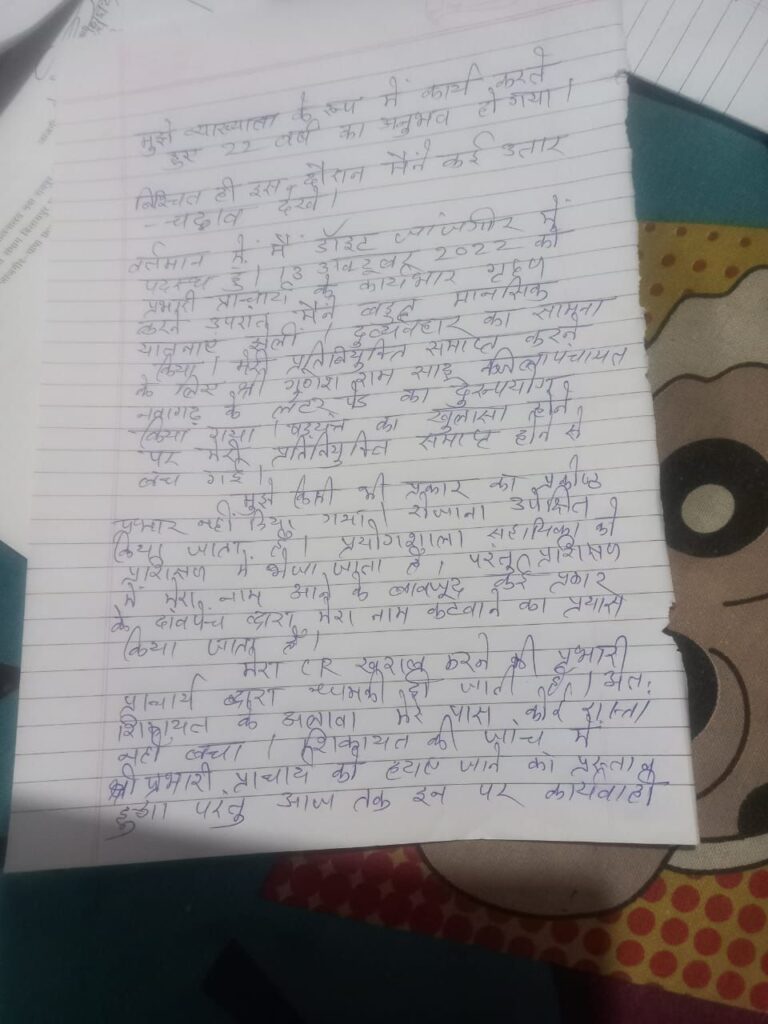 मुझे व्याख्याता के रूप में कार्य करते
हुए 22 वर्षों का अनुभव हो गया।
निश्चित ही इस दौरान मैंने कई उतार
-चढ़ाव देखे।
वर्तमान में मैं डॉइट जांजगीर में
पदस्थ हूँ। 13 अक्टूबर 2022 को
प्रभारी प्राचार्य के कार्यभार ग्रहण
करने उपरांत मैंने बहुत मानसिक
यातनाएं झेली। दुर्व्यवहार का सामना
किया। मेरी प्रतिनियुक्ति समाप्त करने
के लिए श्री गणेश राम साहू जिलापंचायत
नवागढ़ के लेटर पेड का दुरूपयोग
किया गया। षड्यंत्र का खुलासा होने
पर मेरी प्रतिनियुक्ति समाप्त होने से
बच गई।
मुझे किसी भी प्रकार का प्रकोष्ठ
प्रभार नहीं दिया गया। रोजाना उपेक्षित
किया जाता है। प्रयोगशाला सहायिका को
प्रशिक्षण में भेजा जाता है। परंतु प्रशिक्षण
में मेरा नाम आने के बावजूद कई प्रकार
के दावपेंच द्वारा मेरा नाम कटवाने का प्रयास
किया जाता है।
मेरा CR खराब करने की प्रभारी
प्राचार्य द्वारा धमकी दी जाती है। अतः
शिकायत के अलावा मेरे पास कोई रास्ता
नहीं बचा। शिकायत की जांच में
श्री प्रभारी प्राचार्य को हटाए जाने को
हुआ परंतु आज तक इन पर कार्यवाही